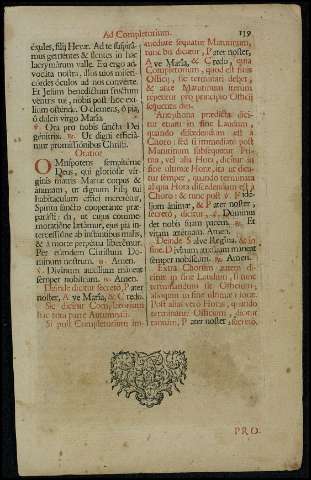 Ad Completorium. 159
éxules, filij Hevæ. Ad te suspirá-
mus geméntes & flentes in hac
lacrymárum valle. Eia ergo ad-
vocáta nostra, illos tuos miseri-
córdes óculos ad nos convérte.
Et Jesum benedíctum fructum
ventris tui, nobis post hoc exí-
lium osténde. O clemens, ô pia,
ô dulcis virgo María.
℣. Ora pro nobis sancta Dei
génitrix. ℟. Ut digni efficiá-
mur promissiónibus Christi.
Oratio.
OMnípotens sempitérne
Deus, qui gloriósæ vír-
ginis matris Maríæ corpus &
ánimam, ut dignum Fílij tui
habitáculum éffici mererétur,
Spíritu sancto cooperánte præ-
parásti: da, ut cujus commemo-
ratióne lætámur, ejus pia in-
tercessióne ab instántibus malis,
& à morte perpétua liberémur.
Per eúmdem Christum Dó-
minum nostrum. ℟. Amen.
℣. Divínum auxílium máneat
semper nobíscum. ℟. Amen.
Deinde dicitur secretò, Pater
noster, Ave María, & Credo.
Sic dicitur Completorium
hac tota parte Autumnali.
Si post Completorium im-
mediate sequatur Matutinum,
tunc his dicatur, Pater noster,
Ave María, & Credo, quia
Completorium, quod est finis
Officij, sic terminari debet,
& ante Matutinum iterum
repetitur pro principio Officij
sequentis diei.
Antiphona prædicta dici-
tur etiam in fine Laudum,
quando discedendum est à
Choro; sed si immediatè post
Matutinum subsequatur Pri-
ma, vel alia Hora, dicitur in
fine ultimæ Horæ, ita ut dica-
tur semper, quando terminata
aliqua Hora discedendum est à
Choro: & tunc post ℣. Fidé-
lium ánimæ, & Pater noster,
secretò, dicitur, ℣. Dóminus
det nobis suam pacem. ℟. Et
vitam ætérnam. Amen.
Deinde Salve Regína. & in
fine Divínum auxílium máneat
semper nobíscum. ℟. Amen.
Extra Chorum autem di-
citur in fine Laudum, si tunc
terminandum sit Officium;
alioquin in fine ultimæ Horæ.
Post alias verò Horas, quando
terminatur Officium, dicitur
tantùm, Pater noster, secretò.
PRO-